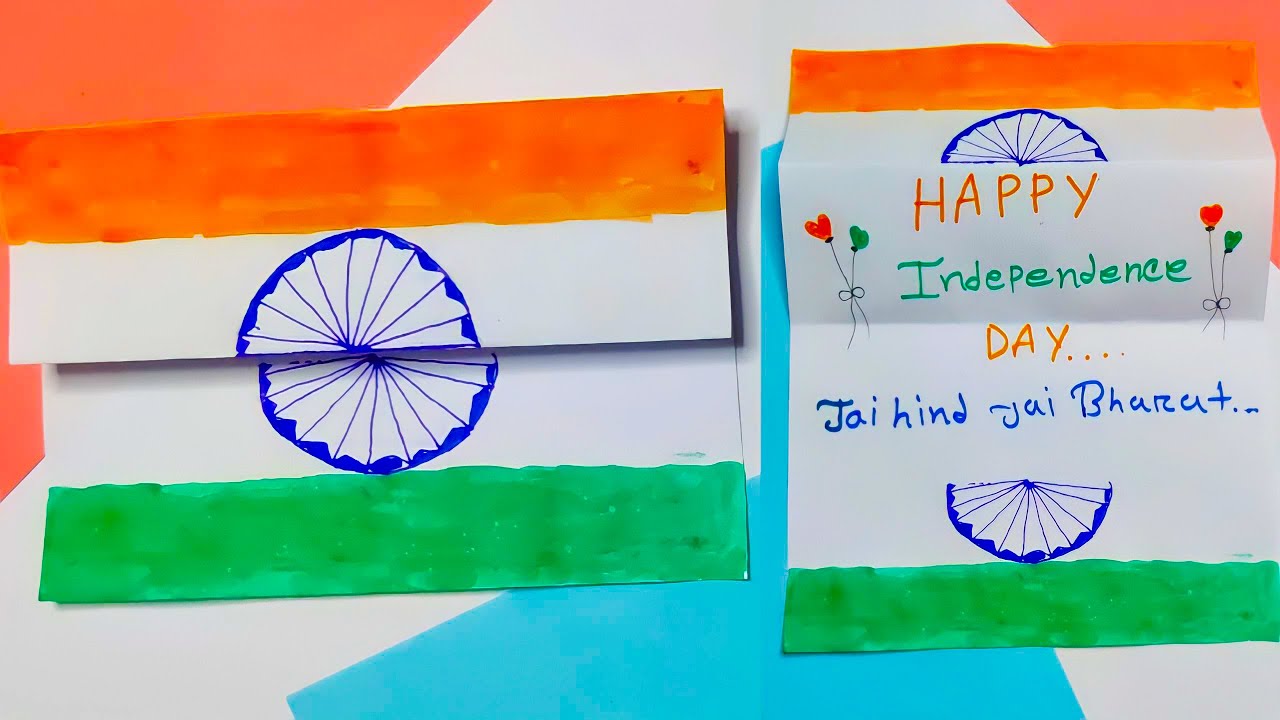 HAPPY
Independence
DAY....
Jai hind -jai Bharat...